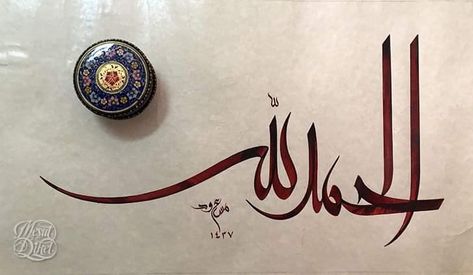 الحمد لله
مسعود
١٤٣٧
Mesud
Dikel